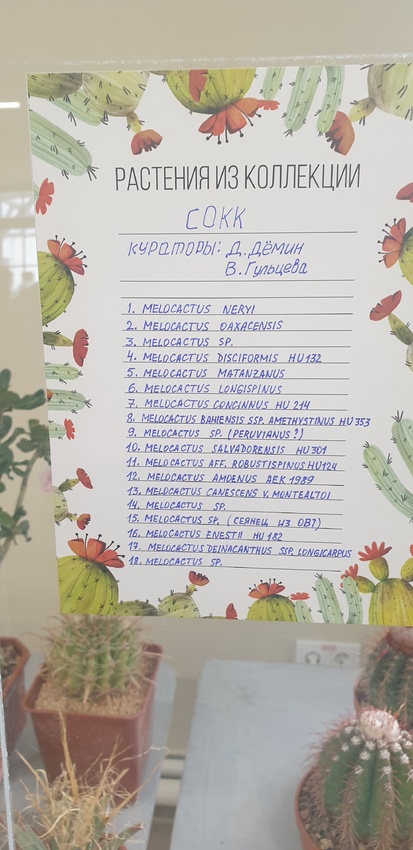 РАСТЕНИЯ ИЗ КОЛЛЕКЦИИ
СОКК
КУРАТОРЫ: Д.Дёмин
В.Гульцева
1. MELOCACTUS NERYI
2. MELOCACTUS OAXACENSIS
3. MELOCACTUS SP.
4. MELOCACTUS DISCIFORMIS HU132
5. MELOCACTUS MATANZANUS
6. MELOCACTUS LONGISPINUS
7. MELOCACTUS CONCINNUS HU 214
8. MELOCACTUS BAHIENSIS SSP. AMETHYSTINUS HU 353
9. MELOCACTUS SP. (PERUVIANUS?)
10. MELOCACTUS SALVADORENSIS HU301
11. MELOCACTUS AFF. ROBUSTISPINUS HU124
12. MELOCACTUS AMOENUS AEK 1989
13. MELOCACTUS CANESCENS V. MONTEALTOI
14. MELOCACTUS SP.
15. MELOCACTUS SP. (СЕЯНЕЦ ИЗ ОВ1)
16. MELOCACTUS ENESTII HU 182
17. MELOCACTUS DEINACANTHUS SSP. LONGICARPUS
18. MELOCACTUS SP.